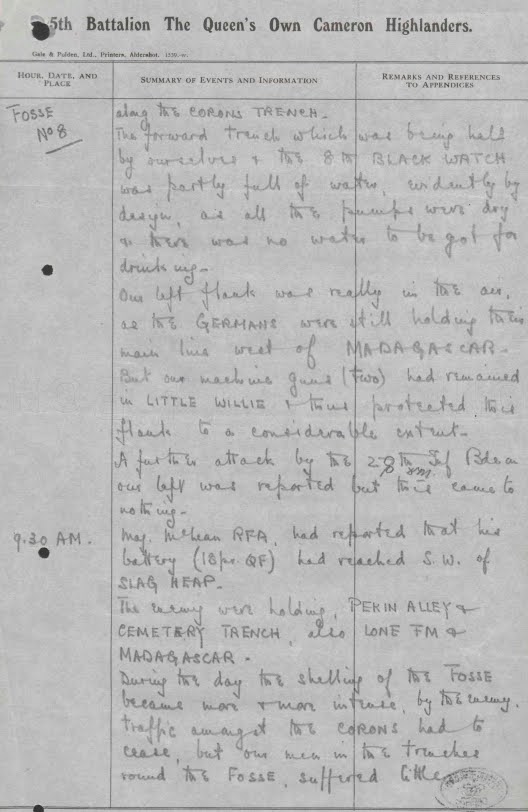 5th Battalion The Queen's Own Cameron Highlanders.
Gale & Polden, Ltd., Printers, Aldershot.
HOUR, DATE, AND PLACE
SUMMARY OF EVENTS AND INFORMATION
REMARKS AND REFERENCES TO APPENDICES
FOSSE
No 8
along THE CORONS TRENCH.
The forward trench which was being held
by ourselves & THE 8TH BLACK WATCH
was partly full of water, evidently by
design, as all THE pumps were dry
& there was no water to be got for
drinking.
Our left flank was really in THE air,
as THE GERMANS were still holding their
main line west of MADAGASCAR.
But our machine guns (two) had remained
in LITTLE WILLIE & thus protected this
flank to a considerable extent.
A further attack by THE 28th Inf Bde on
our left was reported but this came to
nothing.
9.30 AM.
Maj. McLean RFA, had reported that his
battery (18pr QF) had reached S.W. of
SLAG HEAP.
The enemy were holding, PEKIN ALLEY &
CEMETERY TRENCH, also LONE FM &
MADAGASCAR.
During THE day THE shelling of THE FOSSE
became more & more intense, by THE enemy.
traffic amongst THE CORONS had to
cease, but our men in THE trenches
round THE FOSSE, suffered little